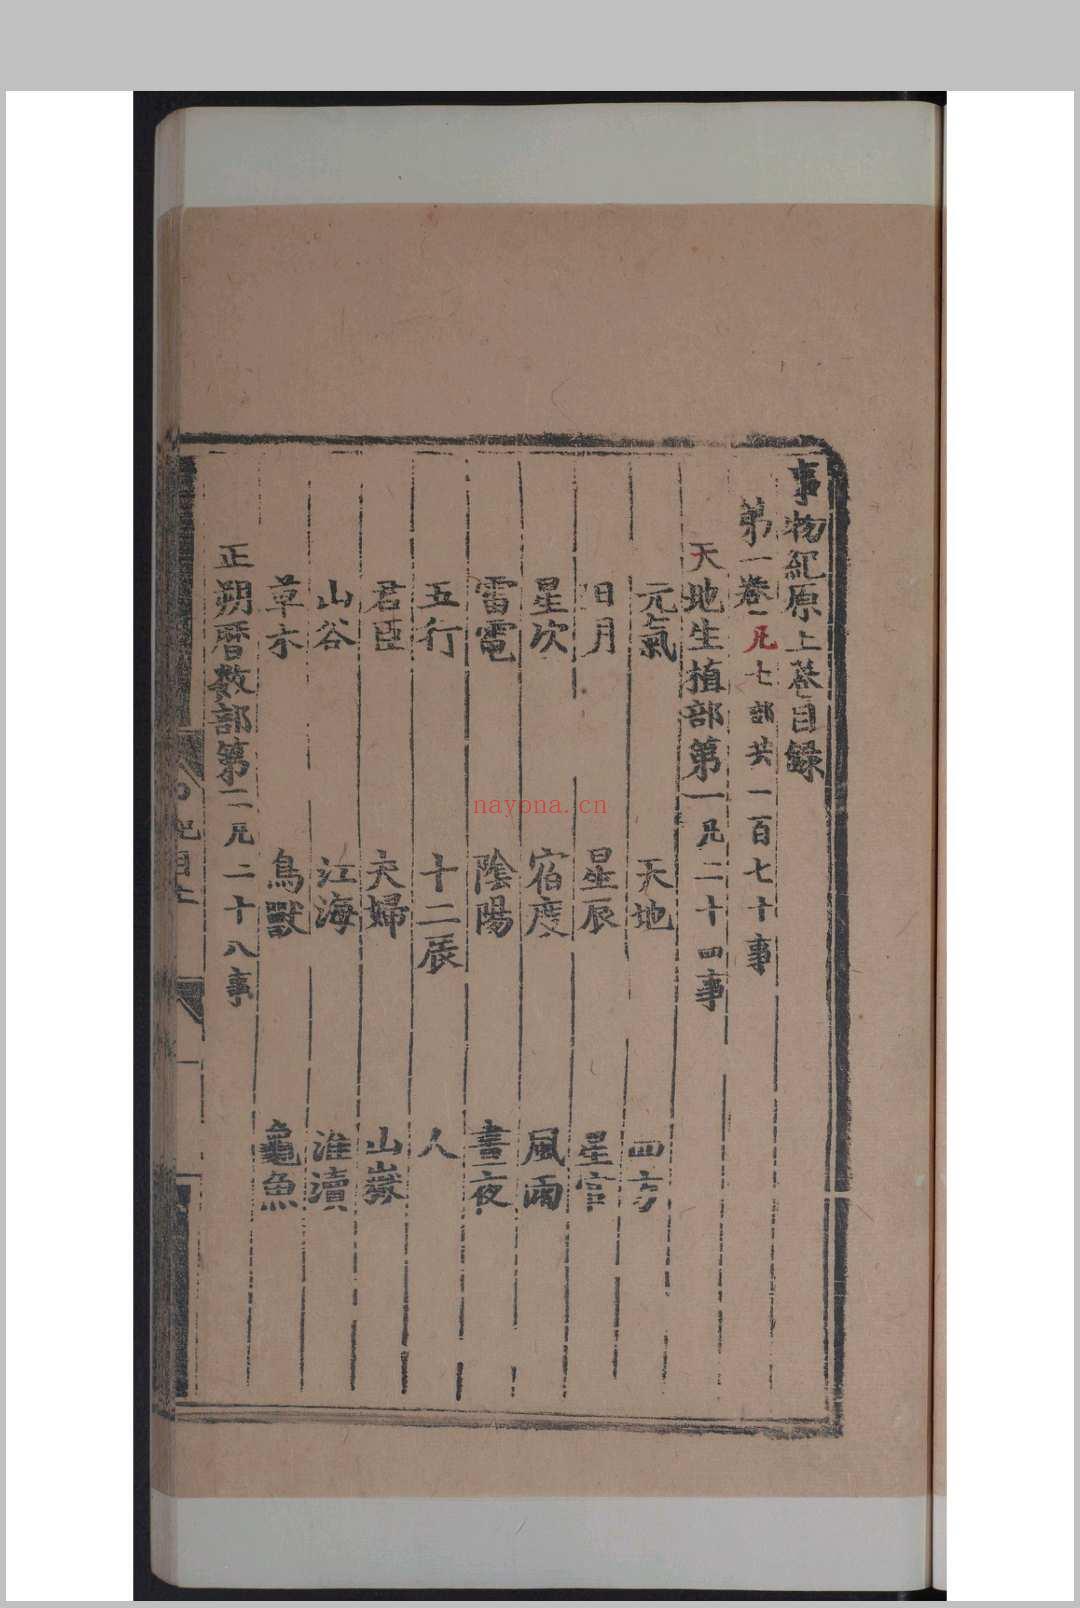 事物紀原上卷目録
第一卷凡七部共一百七十事
天地生植部第一凡二十四事
元氣 天地 四方
日月 星辰 星官
星次 宿度 風雨
雷電 陰陽 晝夜
五行 十二辰 人
君臣 夫婦 山嶽
山谷 江海 淮瀆
草木 鳥獸 龜魚
正朔暦数部第二凡二十八事
nayona.cn